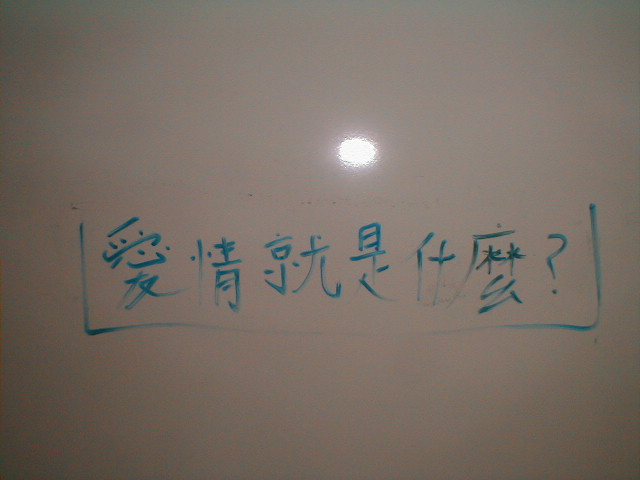 愛情就是什麼?